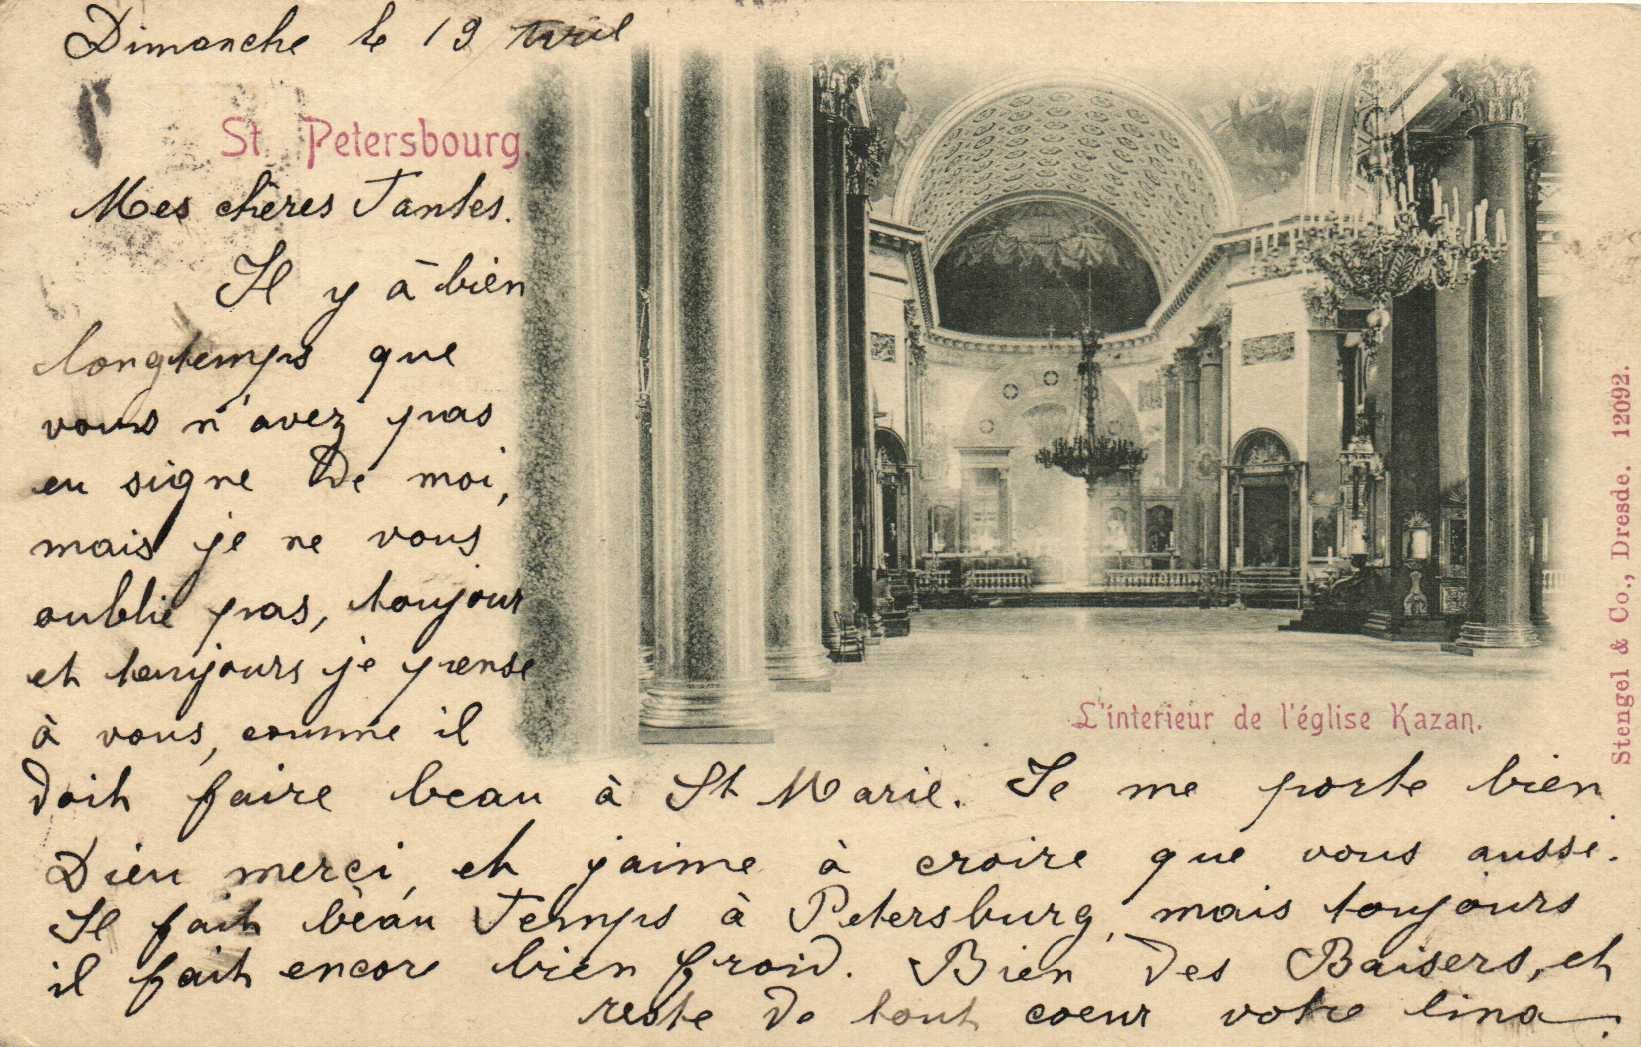 Dimanche le 19 Avril
St. Petersbourg.
Mes chères Tantes.
Il y à bien
longtemps que
vous n'avez pas
eu signe de moi,
mais je ne vous
oublie pas, toujour
et toujours je pense
à vous, comme il
doit faire beau à St Marie. Je me porte bien
Dieu merci, et j'aime à croire que vous aussi.
Il fait bèau Temps à Petersburg, mais toujours
il fait encore bien froid. Bien des Baisers, et
reste de tout coeur votre lina.
L'interieur de l'église Kazan.
Stengel & Co., Dresde. 12092.